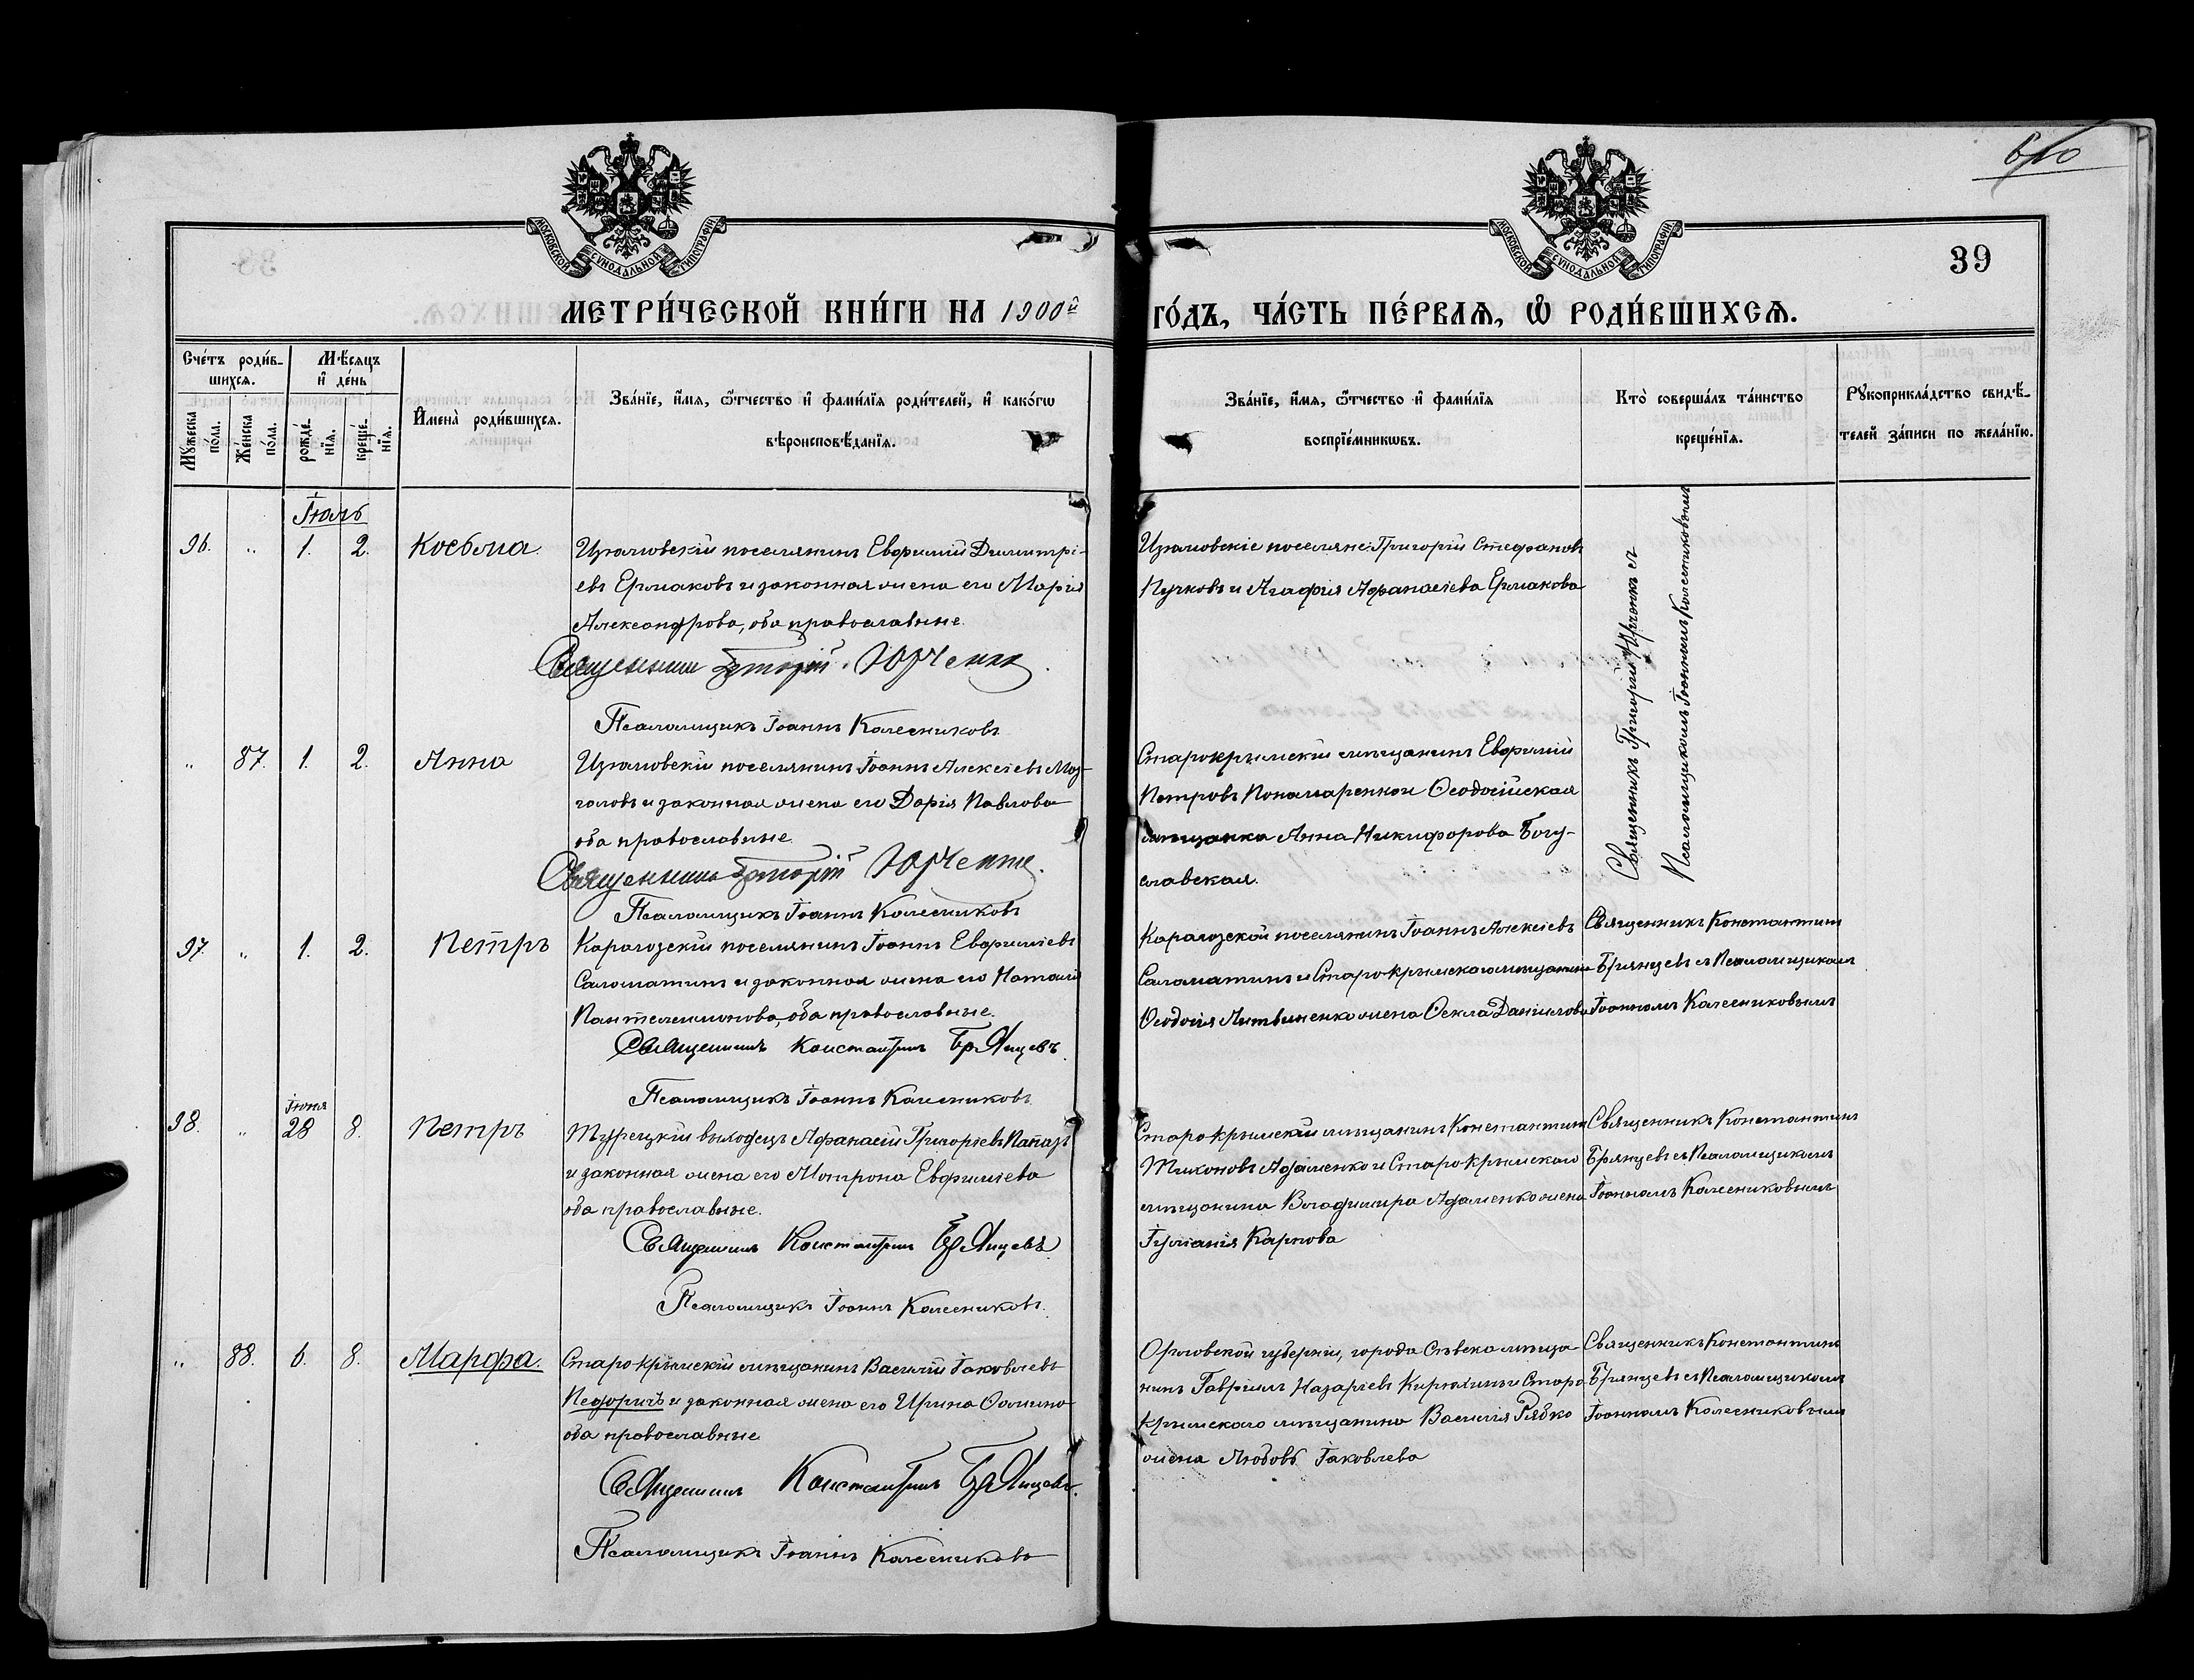 610
39
МОСКОВСКОЙ СѴНОДАЛЬНОЙ ТИПОГРАФІИ
МОСКОВСКОЙ СѴНОДАЛЬНОЙ ТИПОГРАФІИ
МЕТРИ́ЧЕСКОЙ КНИ́ГИ НА 1900й
ГО́ДЪ, ЧА́СТЬ ПЕ́РВАѦ, Ѽ РОДИ́ВШИХСѦ.
Сче́тъ роди́в-
шихсѧ.
Мѣ́сяцъ
и҆ де́нь
Мꙋ́жеска по́ла.
Же́нска по́ла.
рожде́нїѧ.
креще́нїѧ.
И҆мена̀ роди́вшихсѧ.
Зва́нїе, и҆́мѧ, ѻ҆́тчество и҆ фами́лїѧ роди́телей, и҆ како́гѡ
вѣроисповѣ́данїѧ.
Зва́нїе, и҆́мѧ, ѻ҆́тчество и҆ фами́лїѧ
воспрїе́мникѡвъ.
Кто̀ соверша́лъ та́инство
креще́нїѧ.
Рꙋкоприкла́дство свидѣ́-
телей за́писи по жела́нїю.
Іюль
96. „ 1. 2. Косьма.
Изюмовскій поселянинъ Евфимій Димитрі-
евъ Ермаковъ и законная жена его Марія
Александрова, оба православные.
Священникъ Григорій Юрченко.
Псаломщикъ Іоаннъ Колесниковъ
Изюмовскіе поселяне: Григорій Стефановъ
Пучковъ и Агафія Афанасіева Ермакова
Священникъ Григорій Юрченко съ
Псаломщикомъ Іоанномъ Колесниковымъ
„ 87. 1. 2. Анна
Изюмовскій поселянинъ Іоаннъ Алексіевъ Моз-
головъ и законная жена его Дарія Павлова
оба православные.
Священникъ Григорій Юрченко.
Псаломщикъ Іоаннъ Колесниковъ
Старокрымскій мѣщанинъ Евфимій
Петровъ Пономаренко и Ѳеодосійская
мѣщанка Анна Никифорова Богу-
славская.
97. „ 1. 2. Петръ
Карагозскій поселянинъ Іоаннъ Евфиміевъ
Саломатинъ и законная жена его Наталія
Пантелеимонова, оба православные.
Священникъ Константинъ Брянцевъ.
Псаломщикъ Іоаннъ Колесниковъ.
Карагозской поселянинъ Іоаннъ Алексіевъ
Саломатинъ и Старокрымскаго мѣщанина
Ѳеодосія Литвиненко жена Ѳекла Даніилова
Священникъ Константинъ
Брянцевъ съ Псаломщикомъ
Іоанномъ Колесниковымъ
98. „ Іюня 28 8. Петръ
Турецкій выходецъ Афанасій Григоріевъ Папазъ
и законная жена его Матрона Евфиміева
оба православные.
Священникъ Константинъ Брянцевъ
Псаломщикъ Іоаннъ Колесниковъ.
Старокрымскій мѣщанинъ Константинъ
Тихоновъ Адаменко и Старокрымскаго
мѣщанина Владимира Адаменко жена
Іуліанія Карпова
Священникъ Константинъ
Брянцевъ съ Псаломщикомъ
Іоанномъ Колесниковымъ
„ 88. 6. 8. Марфа.
Старокрымскій мѣщанинъ Василій Іаковлевъ
и законная жена его Ирина Ѳомина
оба православные
Священникъ Константинъ Брянцевъ.
Псаломщикъ Іоаннъ Колесниковъ
Орловской губерніи, города Сѣвска мѣща-
нинъ Гавріилъ Назаріевъ Кирюхинъ и Старо-
крымскаго мѣщанина Василія Рябко
жена Любовь Іаковлева
Священникъ Константинъ
Брянцевъ съ Псаломщикомъ
Іоанномъ Колесниковымъ